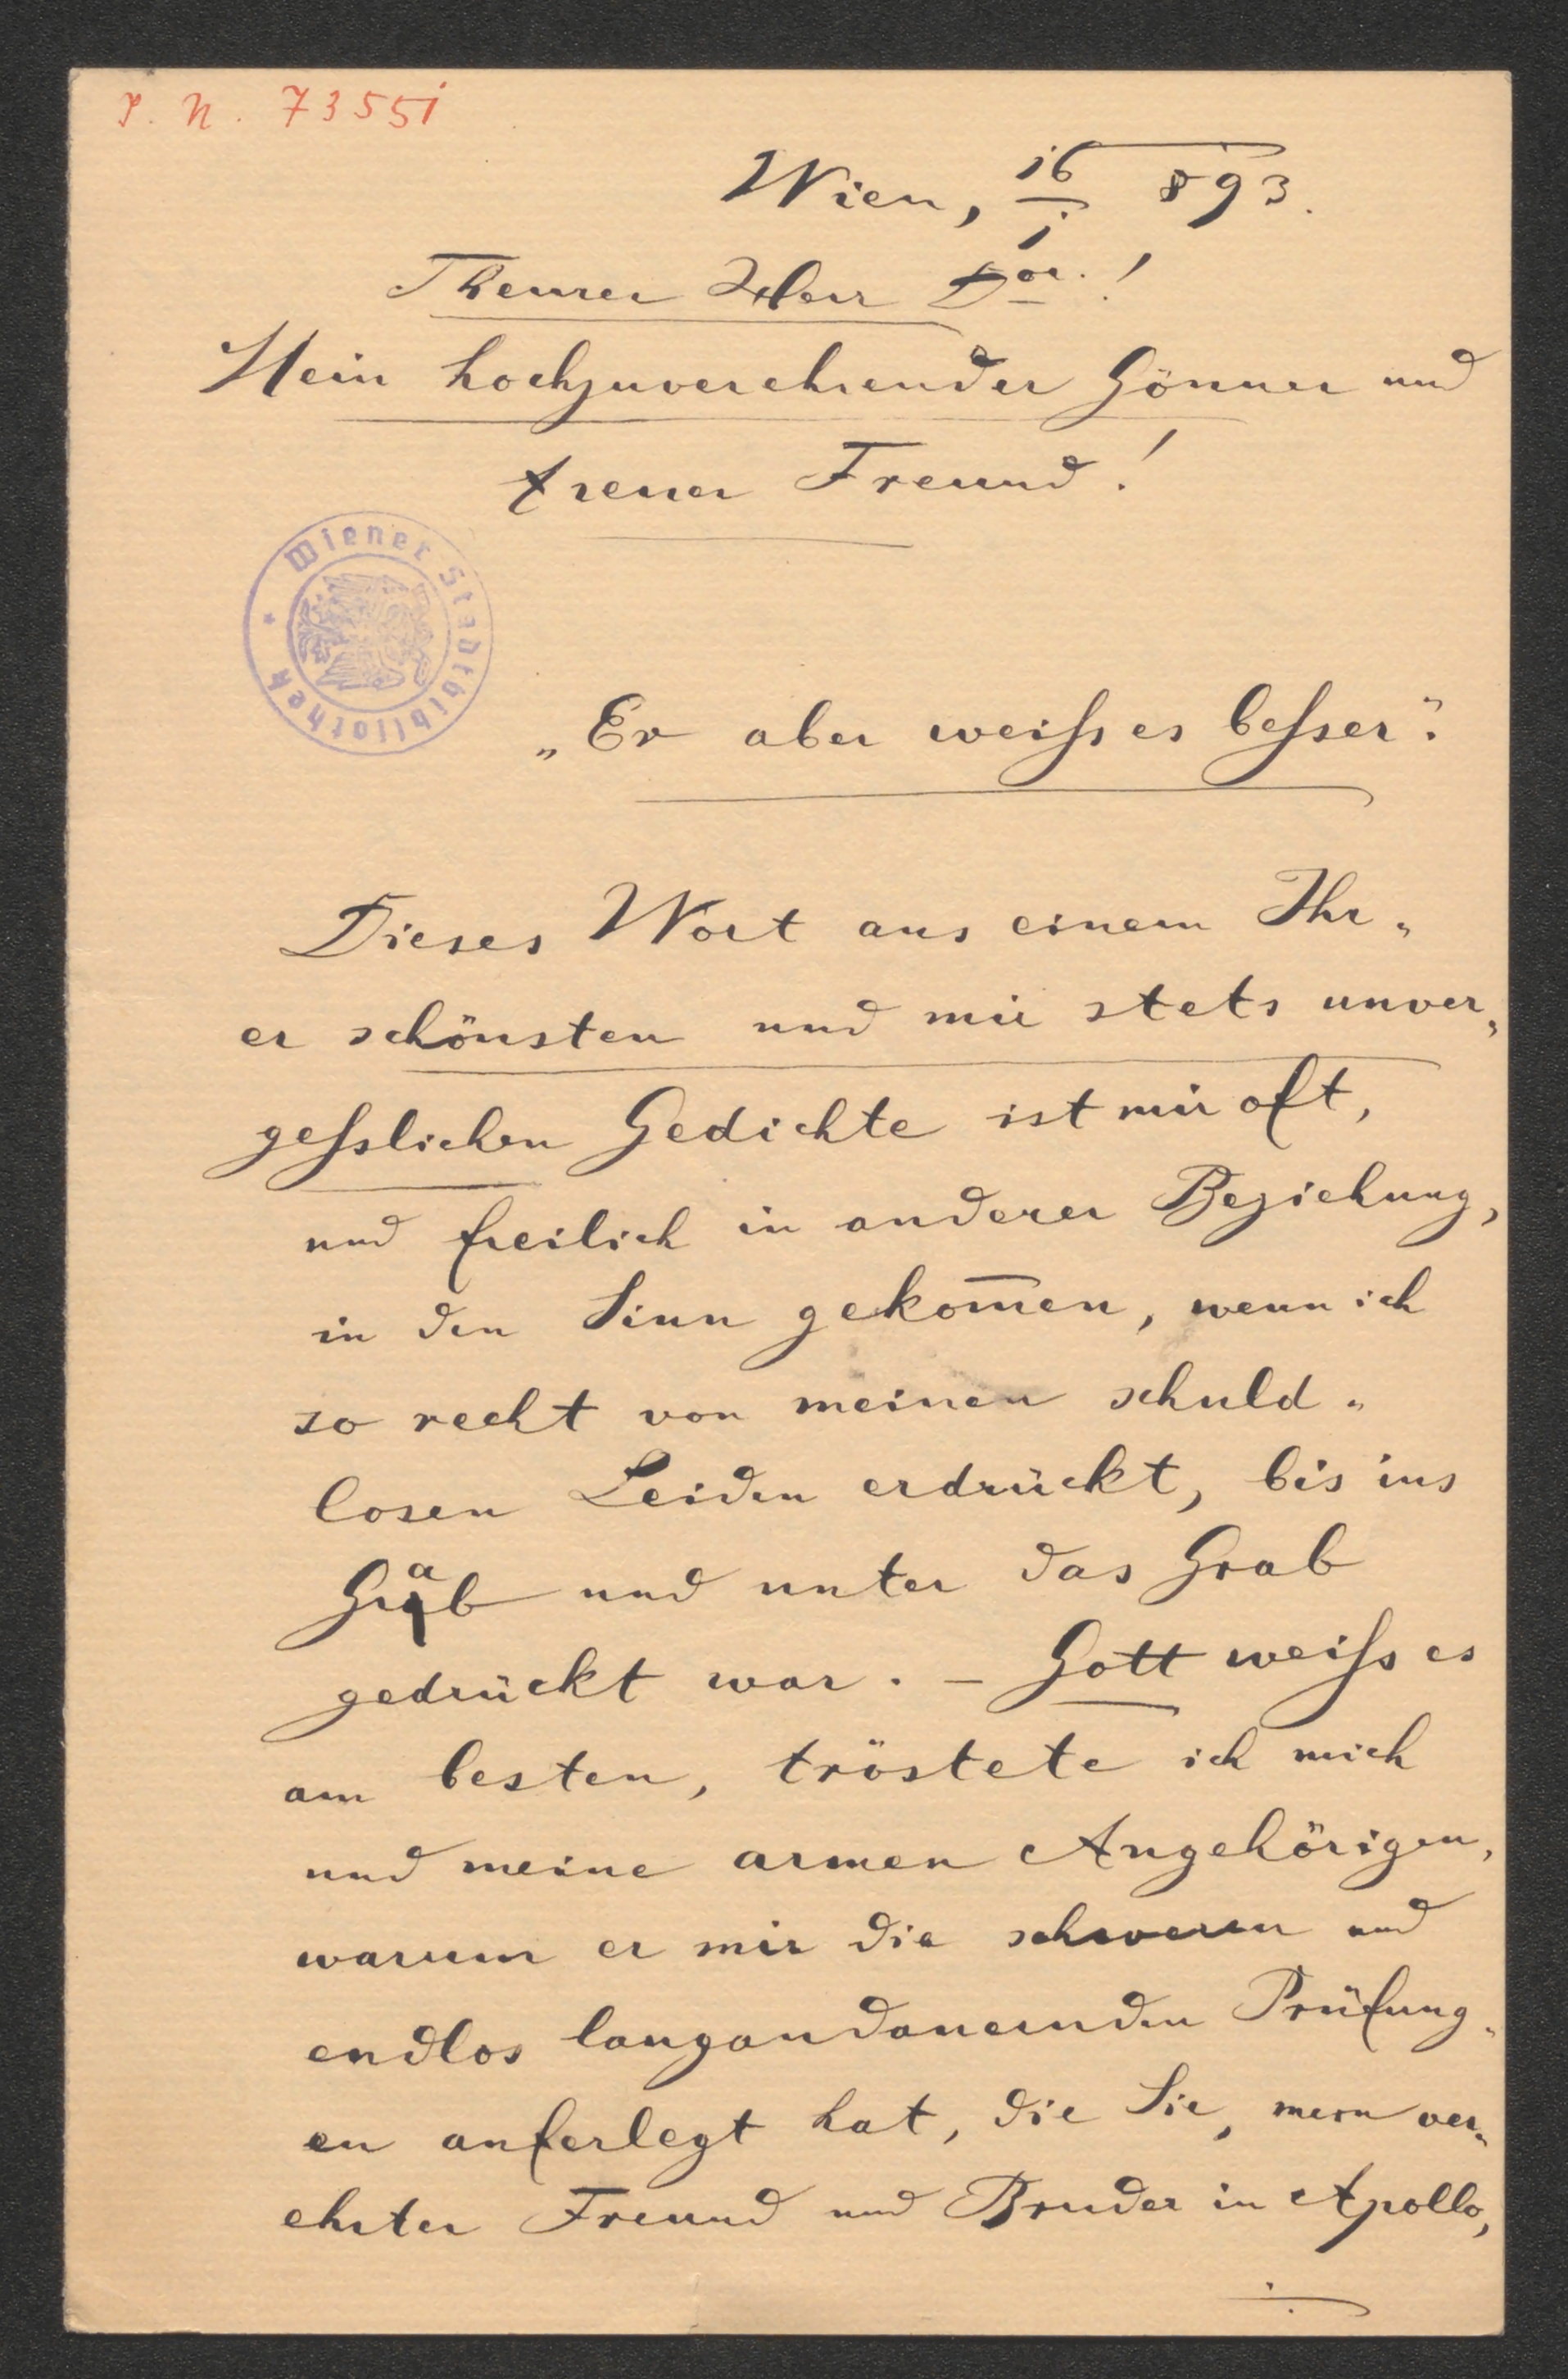 J. N. 73551
Wien, 16/1 893.
Theurer Herr Dor.!
Mein hochzuverehrender Gönner und
treuer Freund!
Wiener Stadtbibliothek
„Er aber weiſs es beſser".
Dieses Wort aus einem Ihr„
er schönsten und mir stets unver„
geſslichen Gedichte ist mir oft,
und freilich in anderer Beziehung,
in den Sinn gekom̄en, wenn ich
so recht von meinen schuld„
losen Leiden erdrückt, bis ins
Grab und unter das Grab
gedrückt war. – Gott weiſs es
am besten, tröstete ich mich
und meine armen Angehörigen,
warum er mir die schweren und
endlos langandauernden Prüfung„
en auferlegt hat, die Sie, mein ver„
ehrter Freund und Bruder in Apollo,